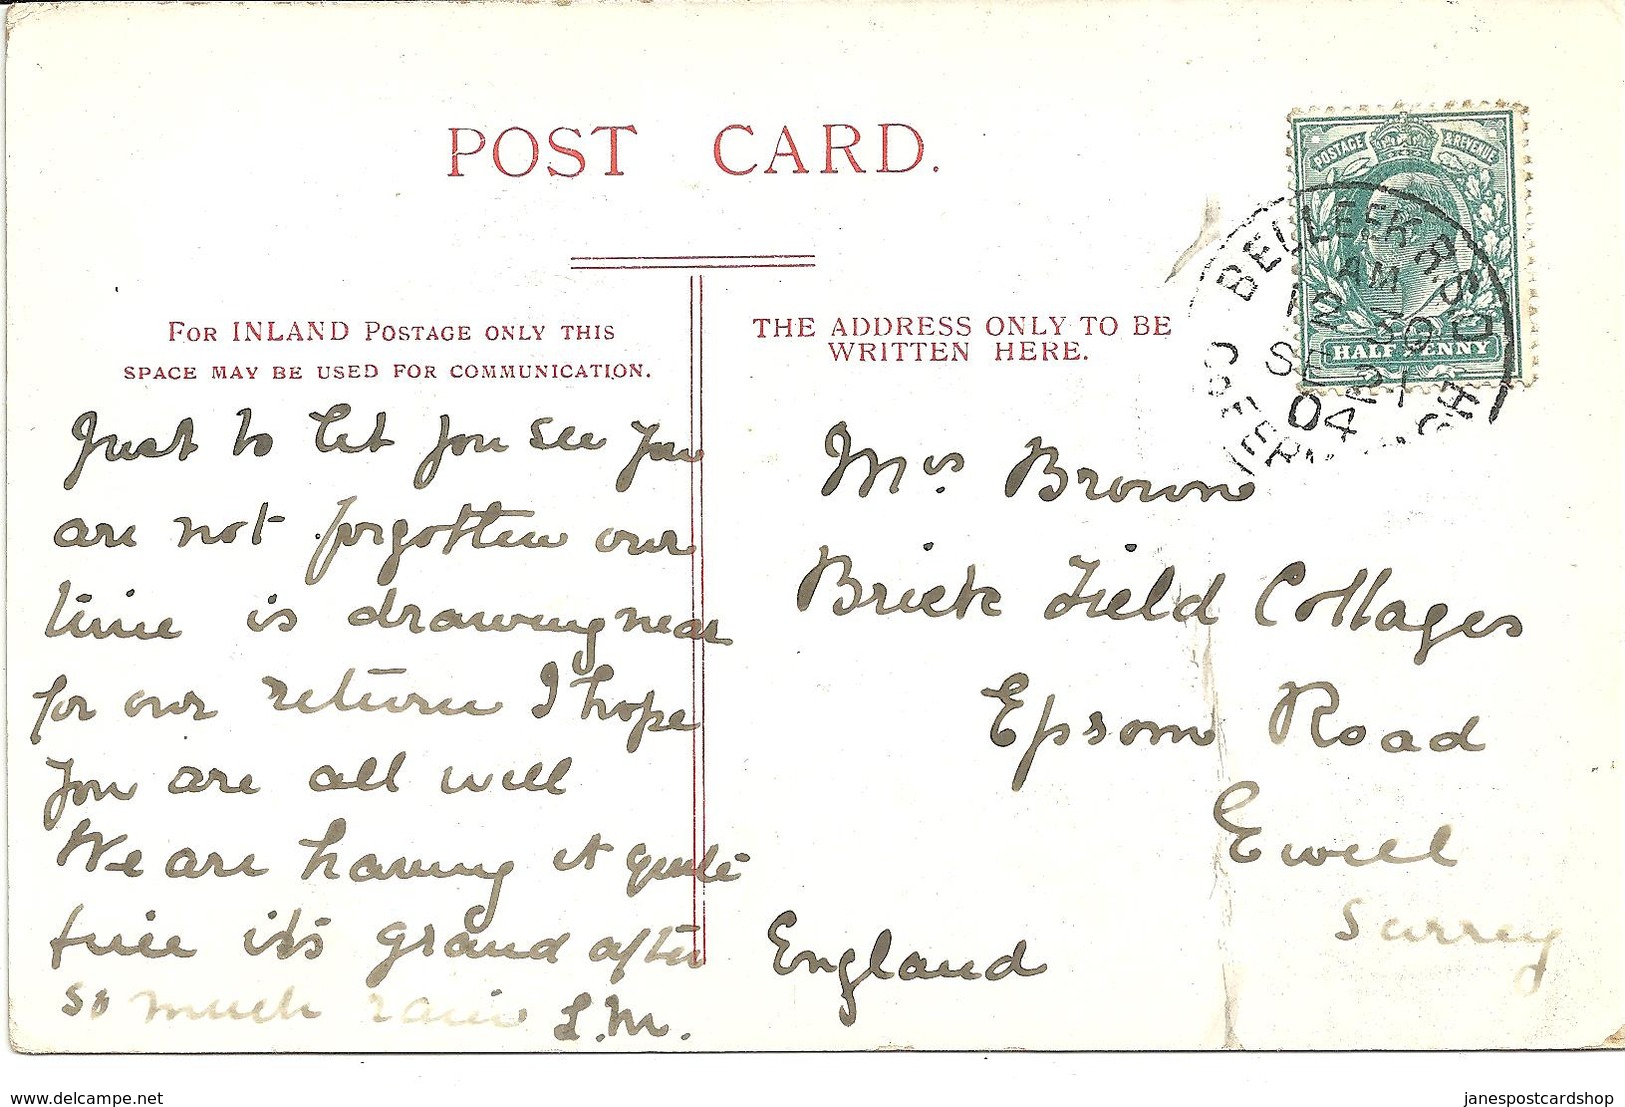 POST CARD.
FOR INLAND POSTAGE ONLY THIS
SPACE MAY BE USED FOR COMMUNICATION.
THE ADDRESS ONLY TO BE
WRITTEN HERE.
POSTAGE & REVENUE
HALF PENNY
BELLEEK R.S.O
AM
12 30
SE 21
04
CO
Just to let you see you
are not forgotten our
time is drawing near
for our return I hope
you are all well
We are having it quite
fine it's grand after
so much rain L.M.
Mrs. Brown
Brick Field Cottages
Epsom Road
Ewell
Surrey
England
delcampe.net
janespostcardshop